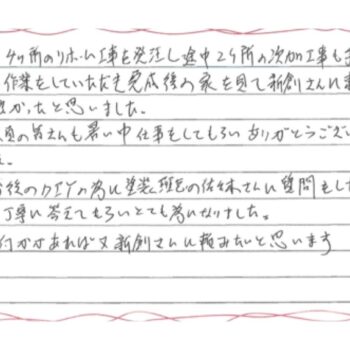 4ヶ所のリホーム工事を発注し途中2ヶ所の追加工事も
作業をしていただき完成後の家を見て新創さんに
良かったと思いました。
員の皆さんも暑い中仕事をしてもらいありがとうござい
後のDIYの為に塗装班の佐々木さんに質問をし
丁寧に答えてもらいとても為になりました。
何かあれば又新創さんに頼みたいと思います